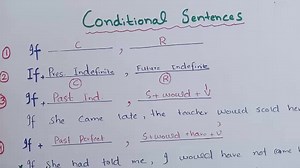 Conditional Sentences
① If C , R
② If + Pres Indefinite , Future Indefinite
C R
③ If + Past Ind , S + would + V
If she came late, the teacher would scold her
If + Past Perfect , S + would + have + V
If she had told me, I would have not come